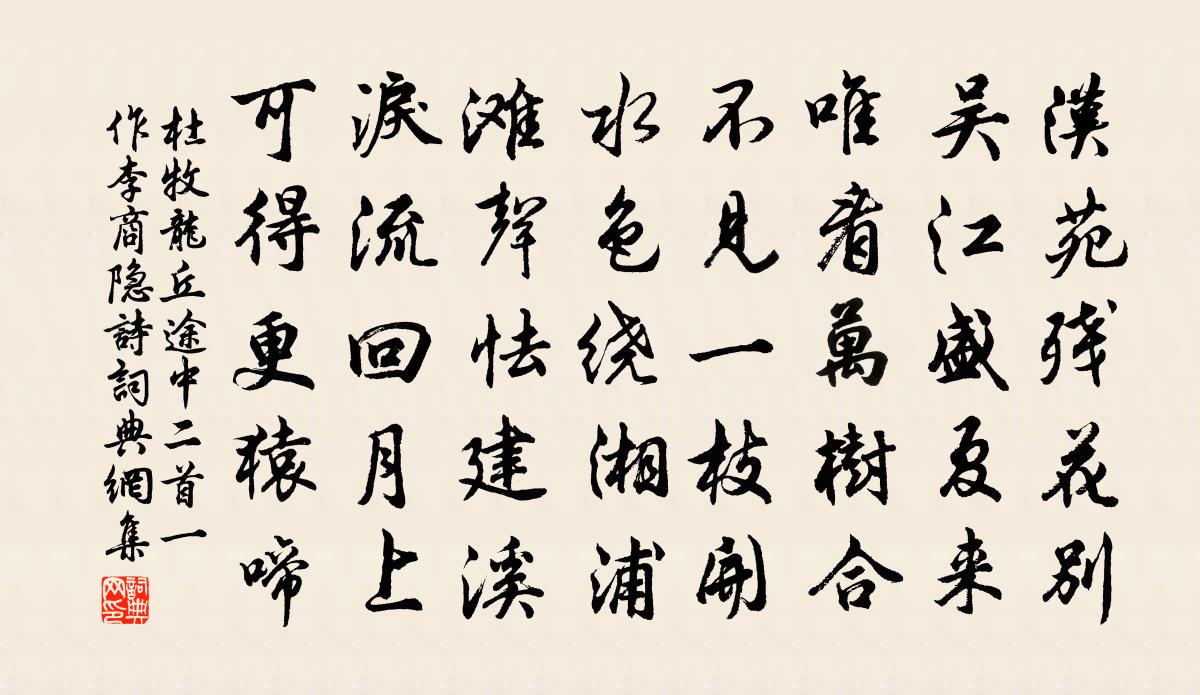 漢苑残花別
吴江盛夏来
唯看萬樹合
不見一枝開
水色绕湘浦
滩聲怯建溪
淚流回月上
可得更猿啼
杜牧龍丘途中二首一
作李商隐詩詞典網集
詞典网印